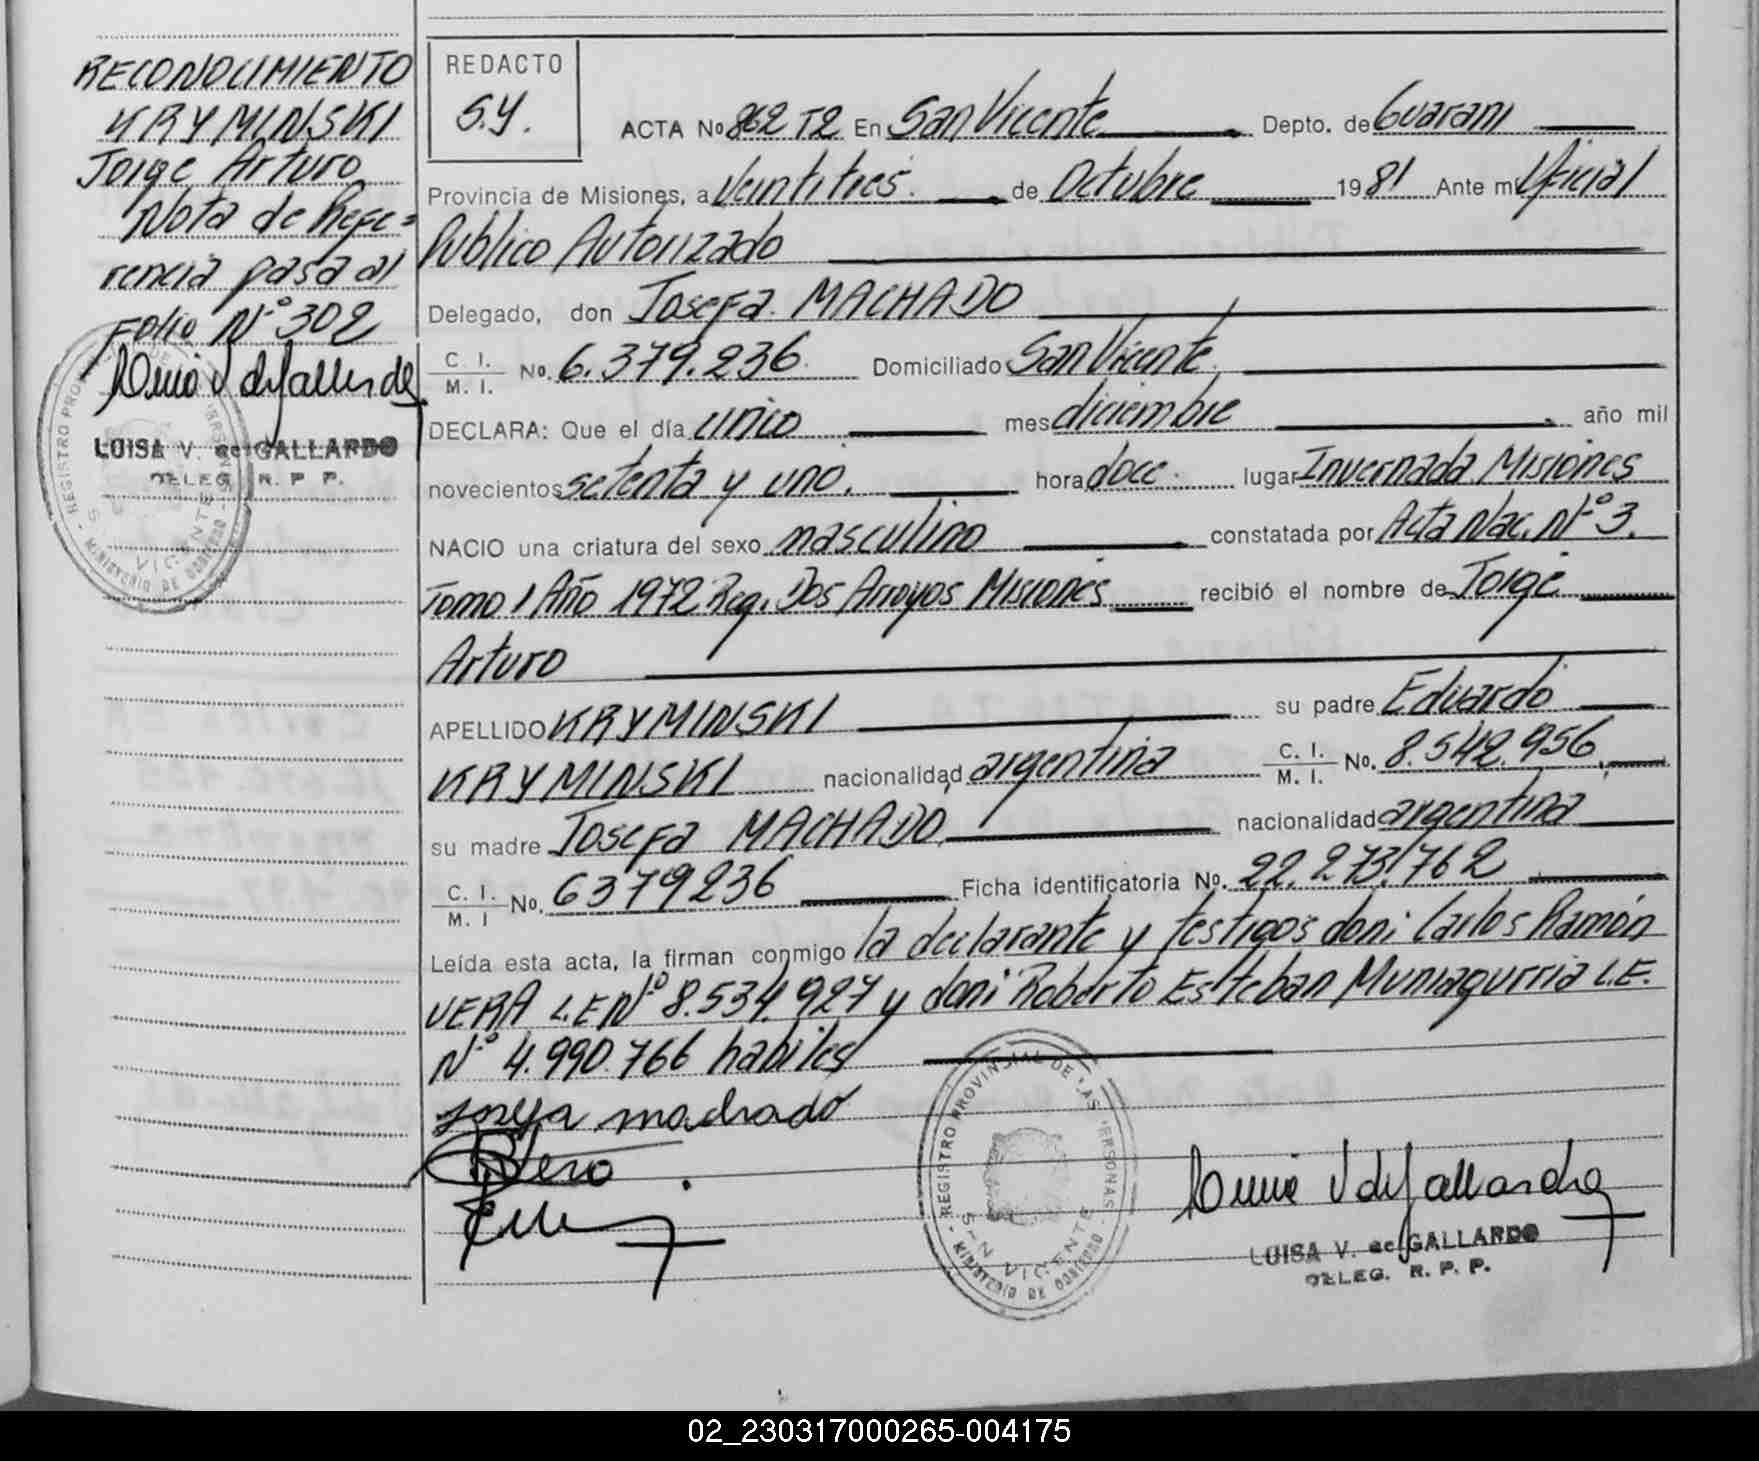 RECONOCIMIENTO
KRYMINSKI
Jorge Arturo
Nota de Refe=
rencia pasa al
Folio Nº 302
LUISA V. de GALLARDO
DELEG. R. P. P.
REGISTRO PROVINCIAL DE LAS PERSONAS
SAN VICENTE
MINISTERIO DE GOBIERNO
REDACTO
S.Y.
ACTA No 862 T2 En San Vicente Depto. de Guarani
Provincia de Misiones, a Veintitres. de Octubre 1981 Ante mi Oficial
Publico Autorizado
Delegado, don Josefa MACHADO
C. I. M. I. No. 6.379.236 Domiciliado San Vicente.
DECLARA: Que el día cinco mes diciembre año mil
novecientos setenta y uno. hora doce. lugar Invernada Misiones
NACIO una criatura del sexo masculino constatada por Acta Nac. Nº 3.
Tomo 1 Año 1972 Reg. Dos Arroyos Misiones recibió el nombre de Jorge
Arturo
APELLIDO KRYMINSKI su padre Eduardo
KRYMINSKI nacionalidad argentina C. I. M. I. No. 8.542.956.
su madre Josefa MACHADO. nacionalidad argentina
C. I. M. I No. 6379236 Ficha identificatoria No. 22.273.762
Leída esta acta, la firman conmigo la declarante y testigos don: Carlos Ramón
VERA L.E Nº 8.534.927 y don: Roberto Esteban Muniagurria L.E.
Nº 4.990.766 habiles
Josefa machado
REGISTRO PROVINCIAL DE LAS PERSONAS
SAN VICENTE
MINISTERIO DE GOBIERNO
LUISA V. de GALLARDO
DELEG. R. P. P.
02_230317000265-004175